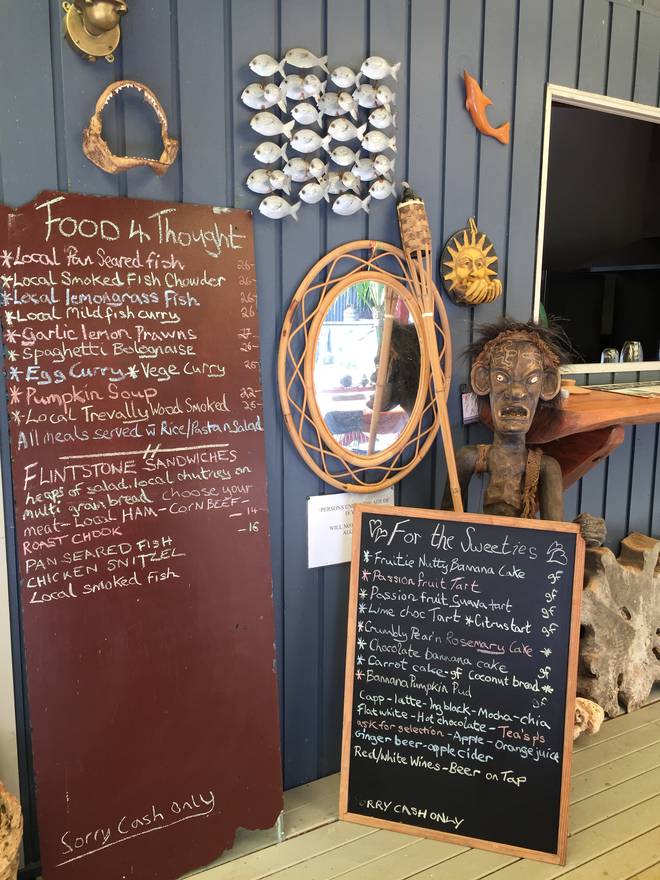 FOOD 4 Thought
*Local Pan Seared fish 26-
*Local Smoked Fish Chowder 26-
*Local lemongrass Fish 26-
*Local Mild fish curry 26
*Garlic lemon Prawns 27-
*Spaghetti Bolegnaise 26-
*Egg Curry *Vege Curry 25
*Pumpkin Soup 22-
*Local Trevally Wood Smoked 25-
All meals served w Rice/Pasta n Salad
FLINTSTONE SANDWICHES
heaps of salad. local chutney on
multi grain bread choose your
meat - Local HAM - Corn BEEF - 14
ROAST CHOOK -16
PAN SEARED FISH
CHICKEN SNITZEL
Local smoked fish
Sorry Cash only
PERSONS
For the Sweeties
*Fruitie Nutty Bannana Cake gf
*Passion fruit Tart
*Passion fruit Guava tart gf
*Lime choc Tart *Citrus tart gf
*Crumbly Pear'n Rosemary Cake *
*Chocolate bannana cake gf
*Carrot cake - gf coconut bread *
*Bannana Pumpkin Pud gf
Capp - latte - lng black - Mocha - chia
flat white - Hot chocolate - Tea's pls
ask for selection - Apple - Orange juice
Ginger beer - apple cider
Red/white Wines - Beer on Tap
ORRY CASH ONLY